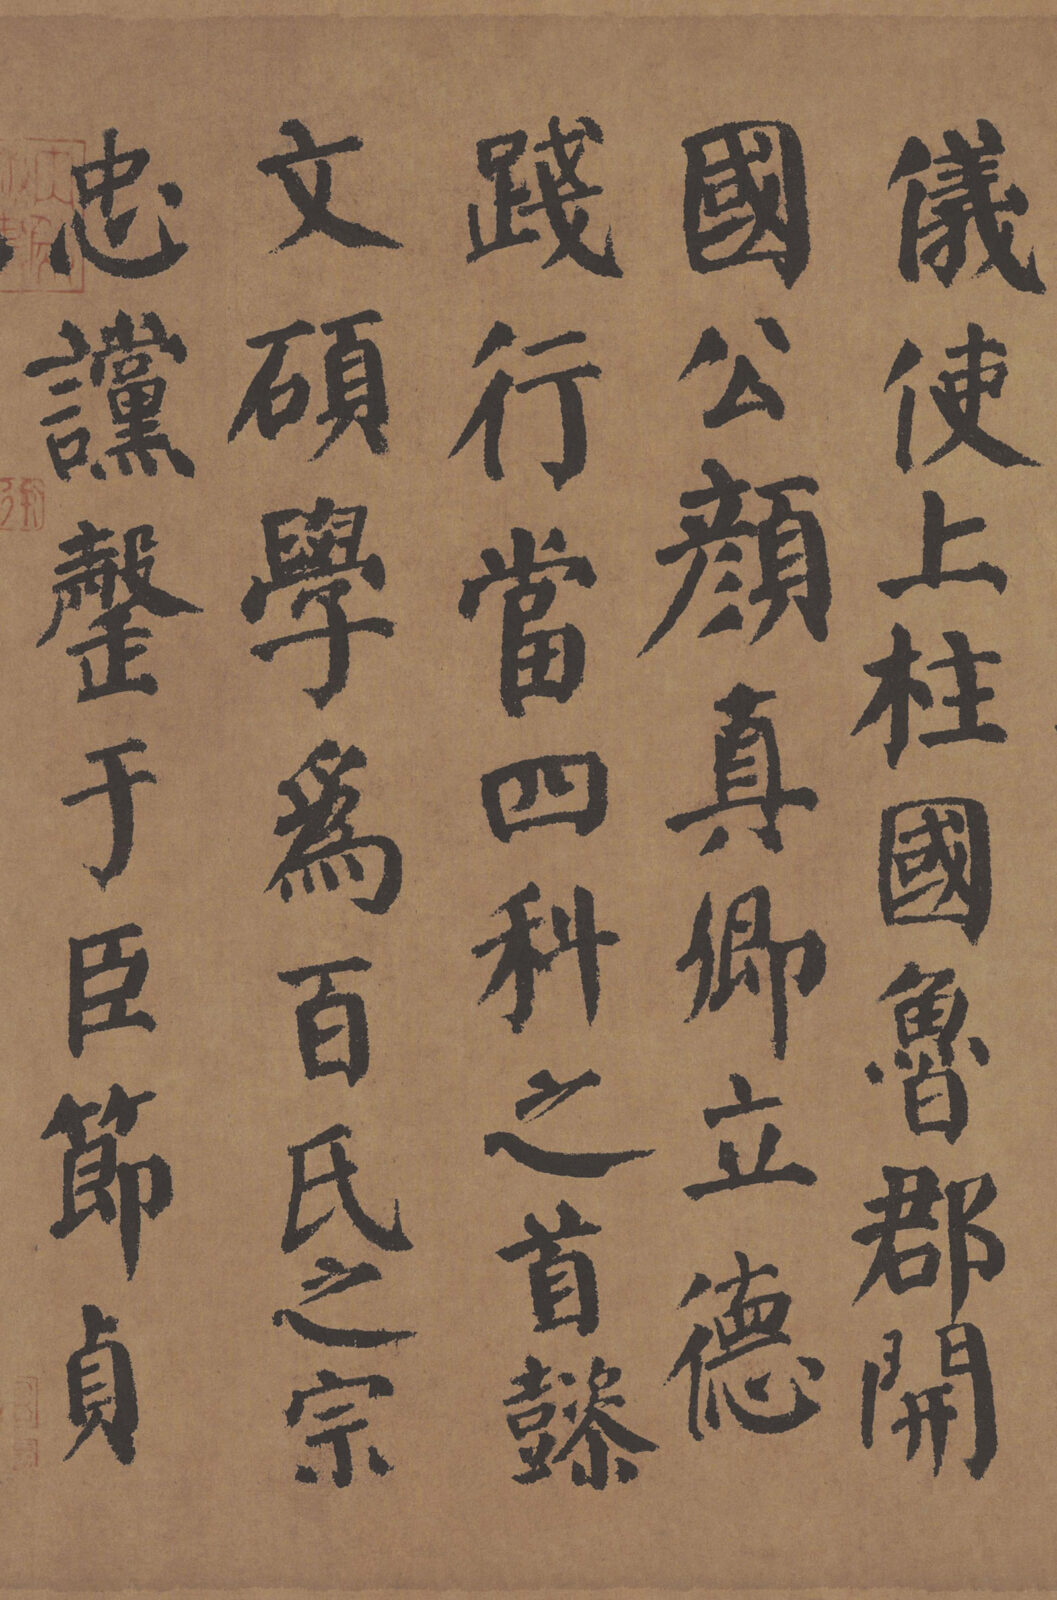 儀使上柱國魯郡開
國公顏真卿立德
踐行當四科之首懿
文碩學為百氏之宗
忠讜罄于臣節貞